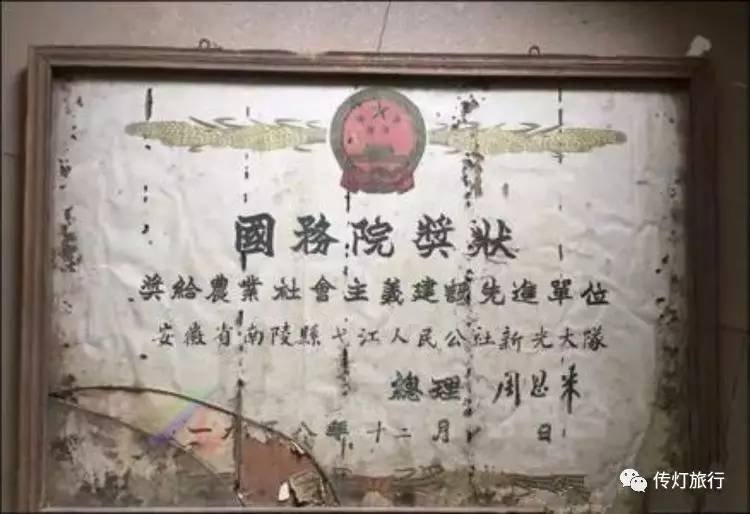 國務院奨狀
奨給農業社會主義建設先進單位
安徽省南陵縣弋江人民公社新光大隊
總理 周恩来
一九五八年十二月 日
传灯旅行